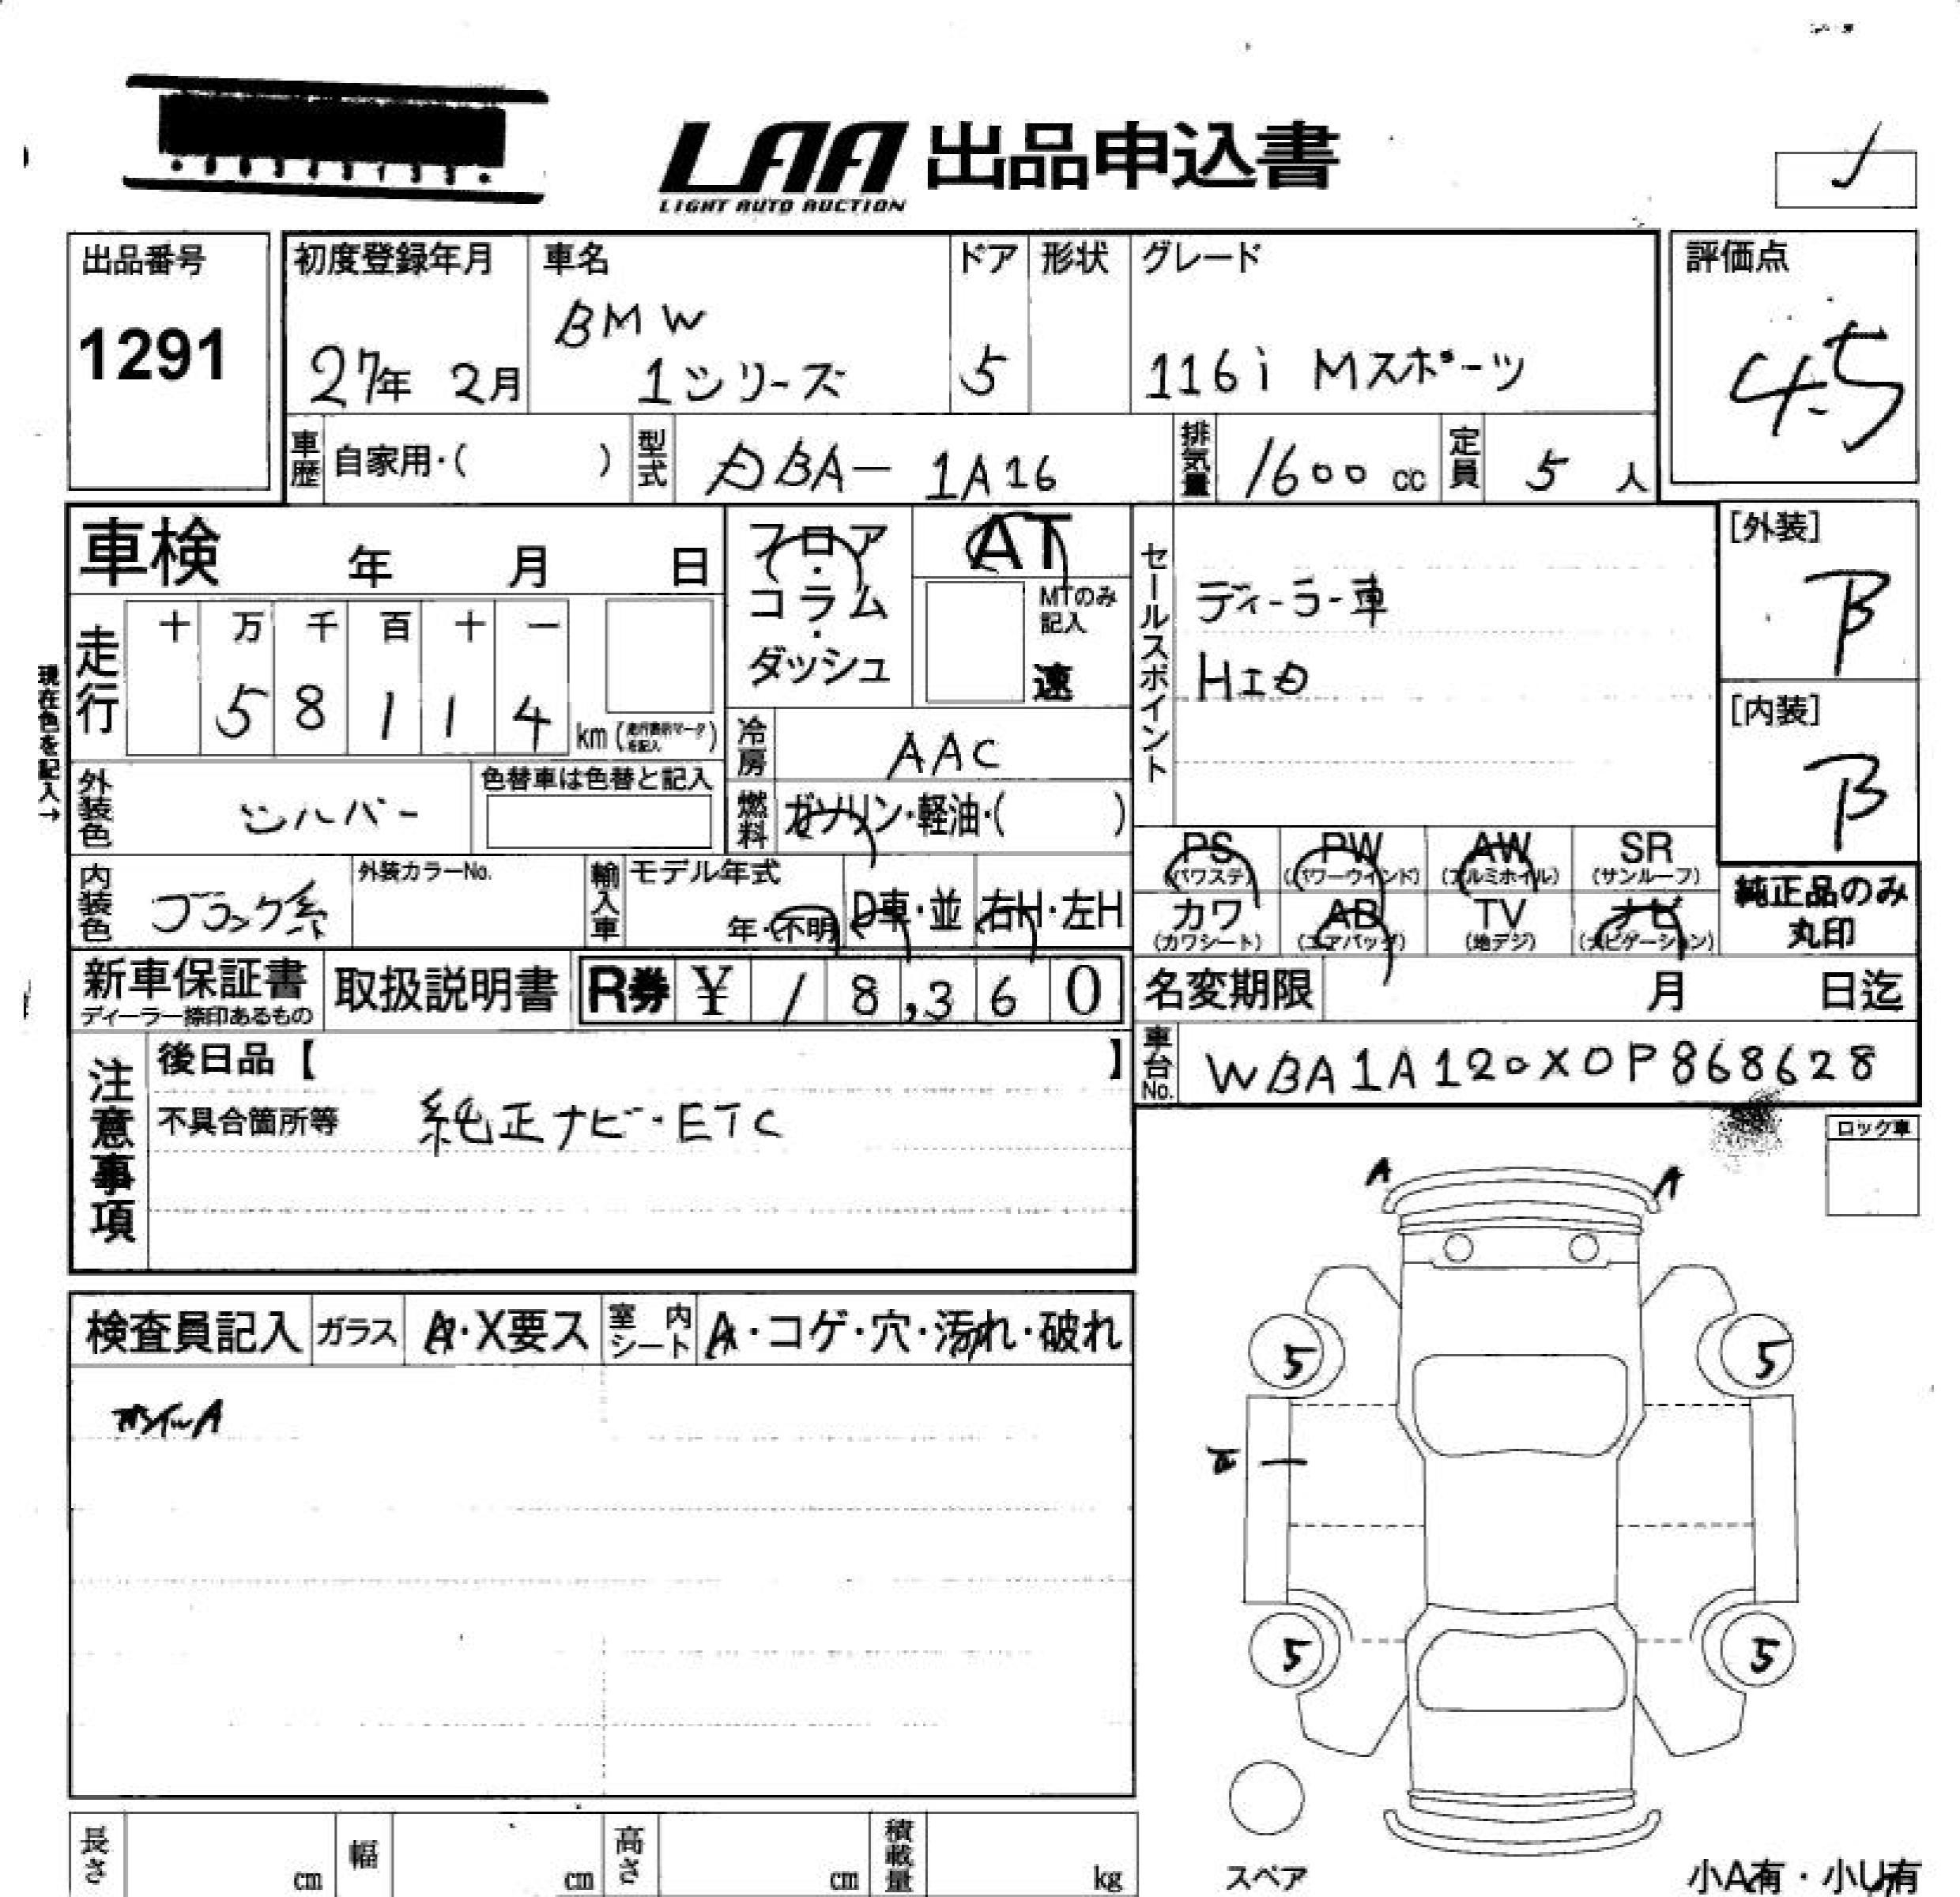 LAA 出品申込書
LIGHT AUTO AUCTION
出品番号
1291
初度登録年月
27年 2月
車名
BMW
1シリーズ
ドア
5
形状
グレード
116i Mスポーツ
評価点
4.5
車歴 自家用・( )
型式 DBA- 1A16
排気量 1600 cc
定員 5 人
車検 年 月 日
走行 十 万 千 百 十 一
5 8 1 1 4 km
現在色を記入→
フロア・コラム・ダッシュ
AT
MTのみ記入
速
冷房 AAC
燃料 ガソリン・軽油・( )
セールスポイント
ディーラー車
HID
[外装]
B
[内装]
B
外装色 シルバー
色替車は色替と記入
内装色 ブラック系
外装カラーNo.
輸入車 モデル年式
年・不明 D車・並 右H・左H
PS (パワステ)
PW (パワーウインド)
AW (アルミホイル)
SR (サンルーフ)
カワ (カワシート)
AB (エアバッグ)
TV (地デジ)
ナビ (ナビゲーション)
純正品のみ
丸印
新車保証書
ディーラー捺印あるもの
取扱説明書
R券 ¥ 18,360
名変期限 月 日迄
車台No. WBA1A120X0P868628
注意事項
後日品【 】
不具合箇所等 純正ナビ・ETC
ロック車
検査員記入 ガラス A・X要ス 室内シート A・コゲ・穴・汚れ・破れ
A A
5 5
5 5
スペア
小A有・小U有
長さ cm 幅 cm 高さ cm 積載量 kg